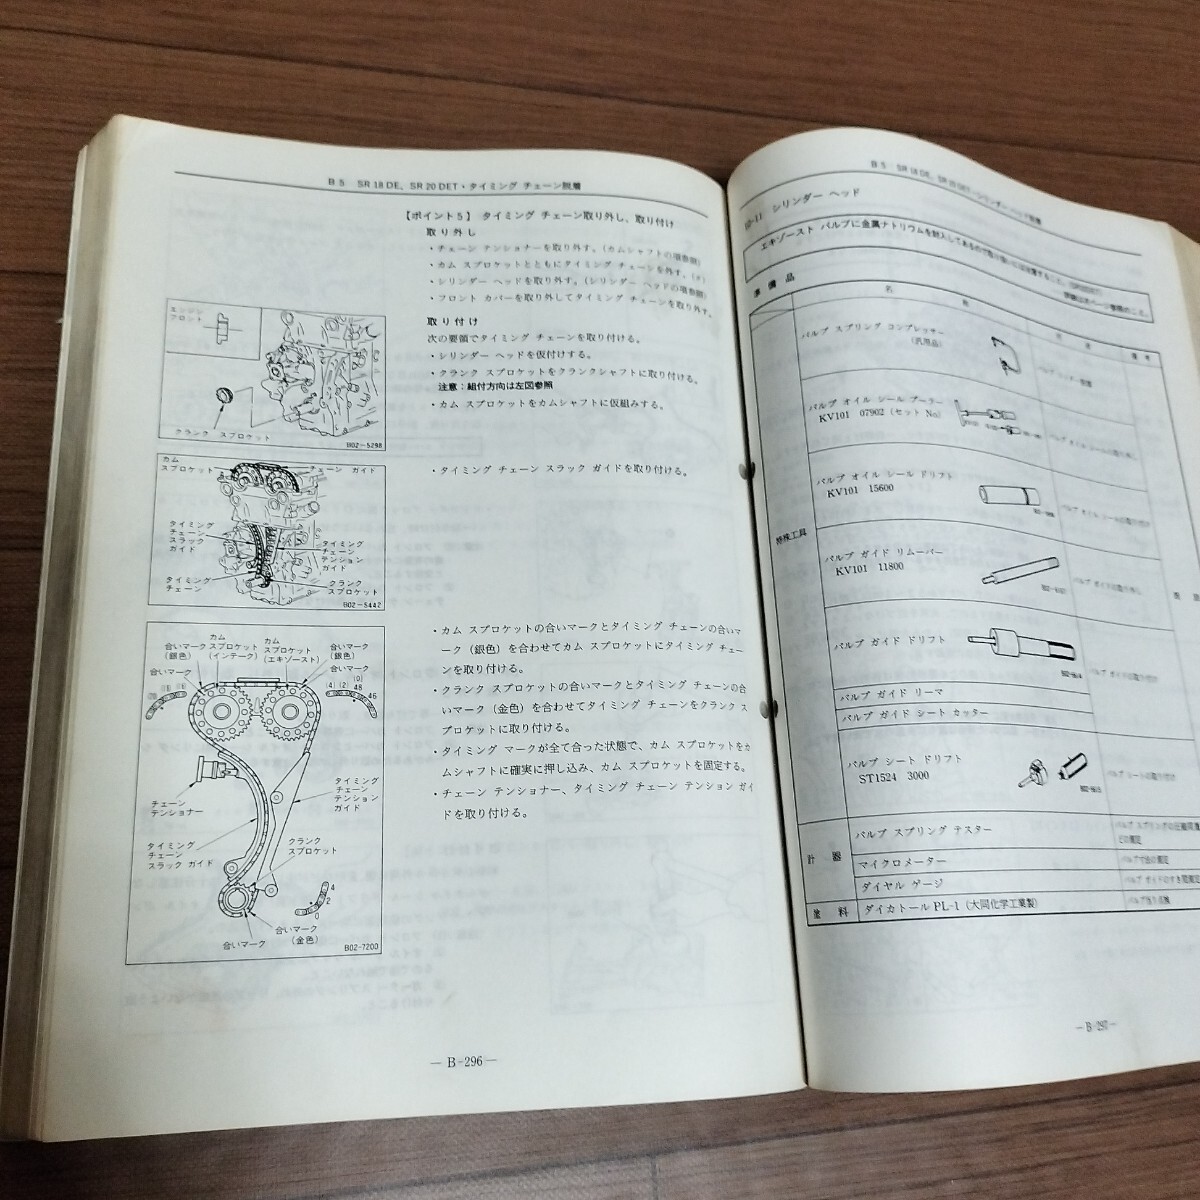 B5 SR18DE、SR20DET・タイミング チェーン脱着
【ポイント5】 タイミング チェーン取り外し、取り付け
取り外し
・チェーン テンショナーを取り外す。(カムシャフトの項参照)
・カム スプロケットとともにタイミング チェーンを外す。(〃)
・シリンダー ヘッドを取り外す。(シリンダー ヘッドの項参照)
・フロント カバーを取り外してタイミング チェーンを取り外す。
取り付け
次の要領でタイミング チェーンを取り付ける。
・シリンダー ヘッドを仮付けする。
・クランク スプロケットをクランクシャフトに取り付ける。
注意:組付方向は左図参照
・カム スプロケットをカムシャフトに仮組みする。
エンジン
フロント
クランク スプロケット
B02-5298
・タイミング チェーン スラック ガイドを取り付ける。
カム
スプロケット
チェーン ガイド
タイミング
チェーン
スラック
ガイド
タイミング
チェーン
タイミング
チェーン
テンション
ガイド
クランク
スプロケット
B02-5442
・カム スプロケットの合いマークとタイミング チェーンの合いマ
ーク(銀色)を合わせてカム スプロケットにタイミング チェー
ンを取り付ける。
・クランク スプロケットの合いマークとタイミング チェーンの合
いマーク(金色)を合わせてタイミング チェーンをクランク ス
プロケットに取り付ける。
・タイミング マークが全て合った状態で、カム スプロケットをカ
ムシャフトに確実に押し込み、カム スプロケットを固定する。
・チェーン テンショナー、タイミング チェーン テンション ガイ
ドを取り付ける。
合いマーク
(銀色)
カム
スプロケット
(インテーク)
カム
スプロケット
(エキゾースト)
合いマーク
(銀色)
合いマーク
合いマーク
(0)
(4) (2) 48
46
チェーン
テンショナー
タイミング
チェーン
テンション
ガイド
タイミング
チェーン
スラック ガイド
クランク
スプロケット
4
2
0
合いマーク
合いマーク
(金色)
B02-7200
— B-296 —
B5 SR18DE、SR20DET・シリンダー ヘッド脱着
10-11 シリンダー ヘッド
エキゾースト バルブに金属ナトリウムを封入してあるので取り扱いには注意すること。(SR20DET)
準備品
名 称
用 途
備 考
特殊工具
バルブ スプリング コンプレッサー
(汎用品)
バルブ オイル シール プーラー
KV101 07902 (セット No)
バルブ オイル シール ドリフト
KV101 15600
バルブ オイル シールの取り付け
バルブ ガイド リムーバー
KV101 11800
バルブ ガイドの取り外し
バルブ ガイド ドリフト
バルブ ガイドの取り付け
バルブ ガイド リーマ
バルブ ガイド シート カッター
バルブ シート ドリフト
ST1524 3000
バルブ シートの取り付け
計 器
バルブ スプリング テスター
バルブ スプリングの圧縮荷重な
どの測定
マイクロメーター
バルブ寸法の測定
ダイヤル ゲージ
バルブ ガイドのすき間測定
塗 料
ダイカトールPL-1(大同化学工業製)
— B-297 —